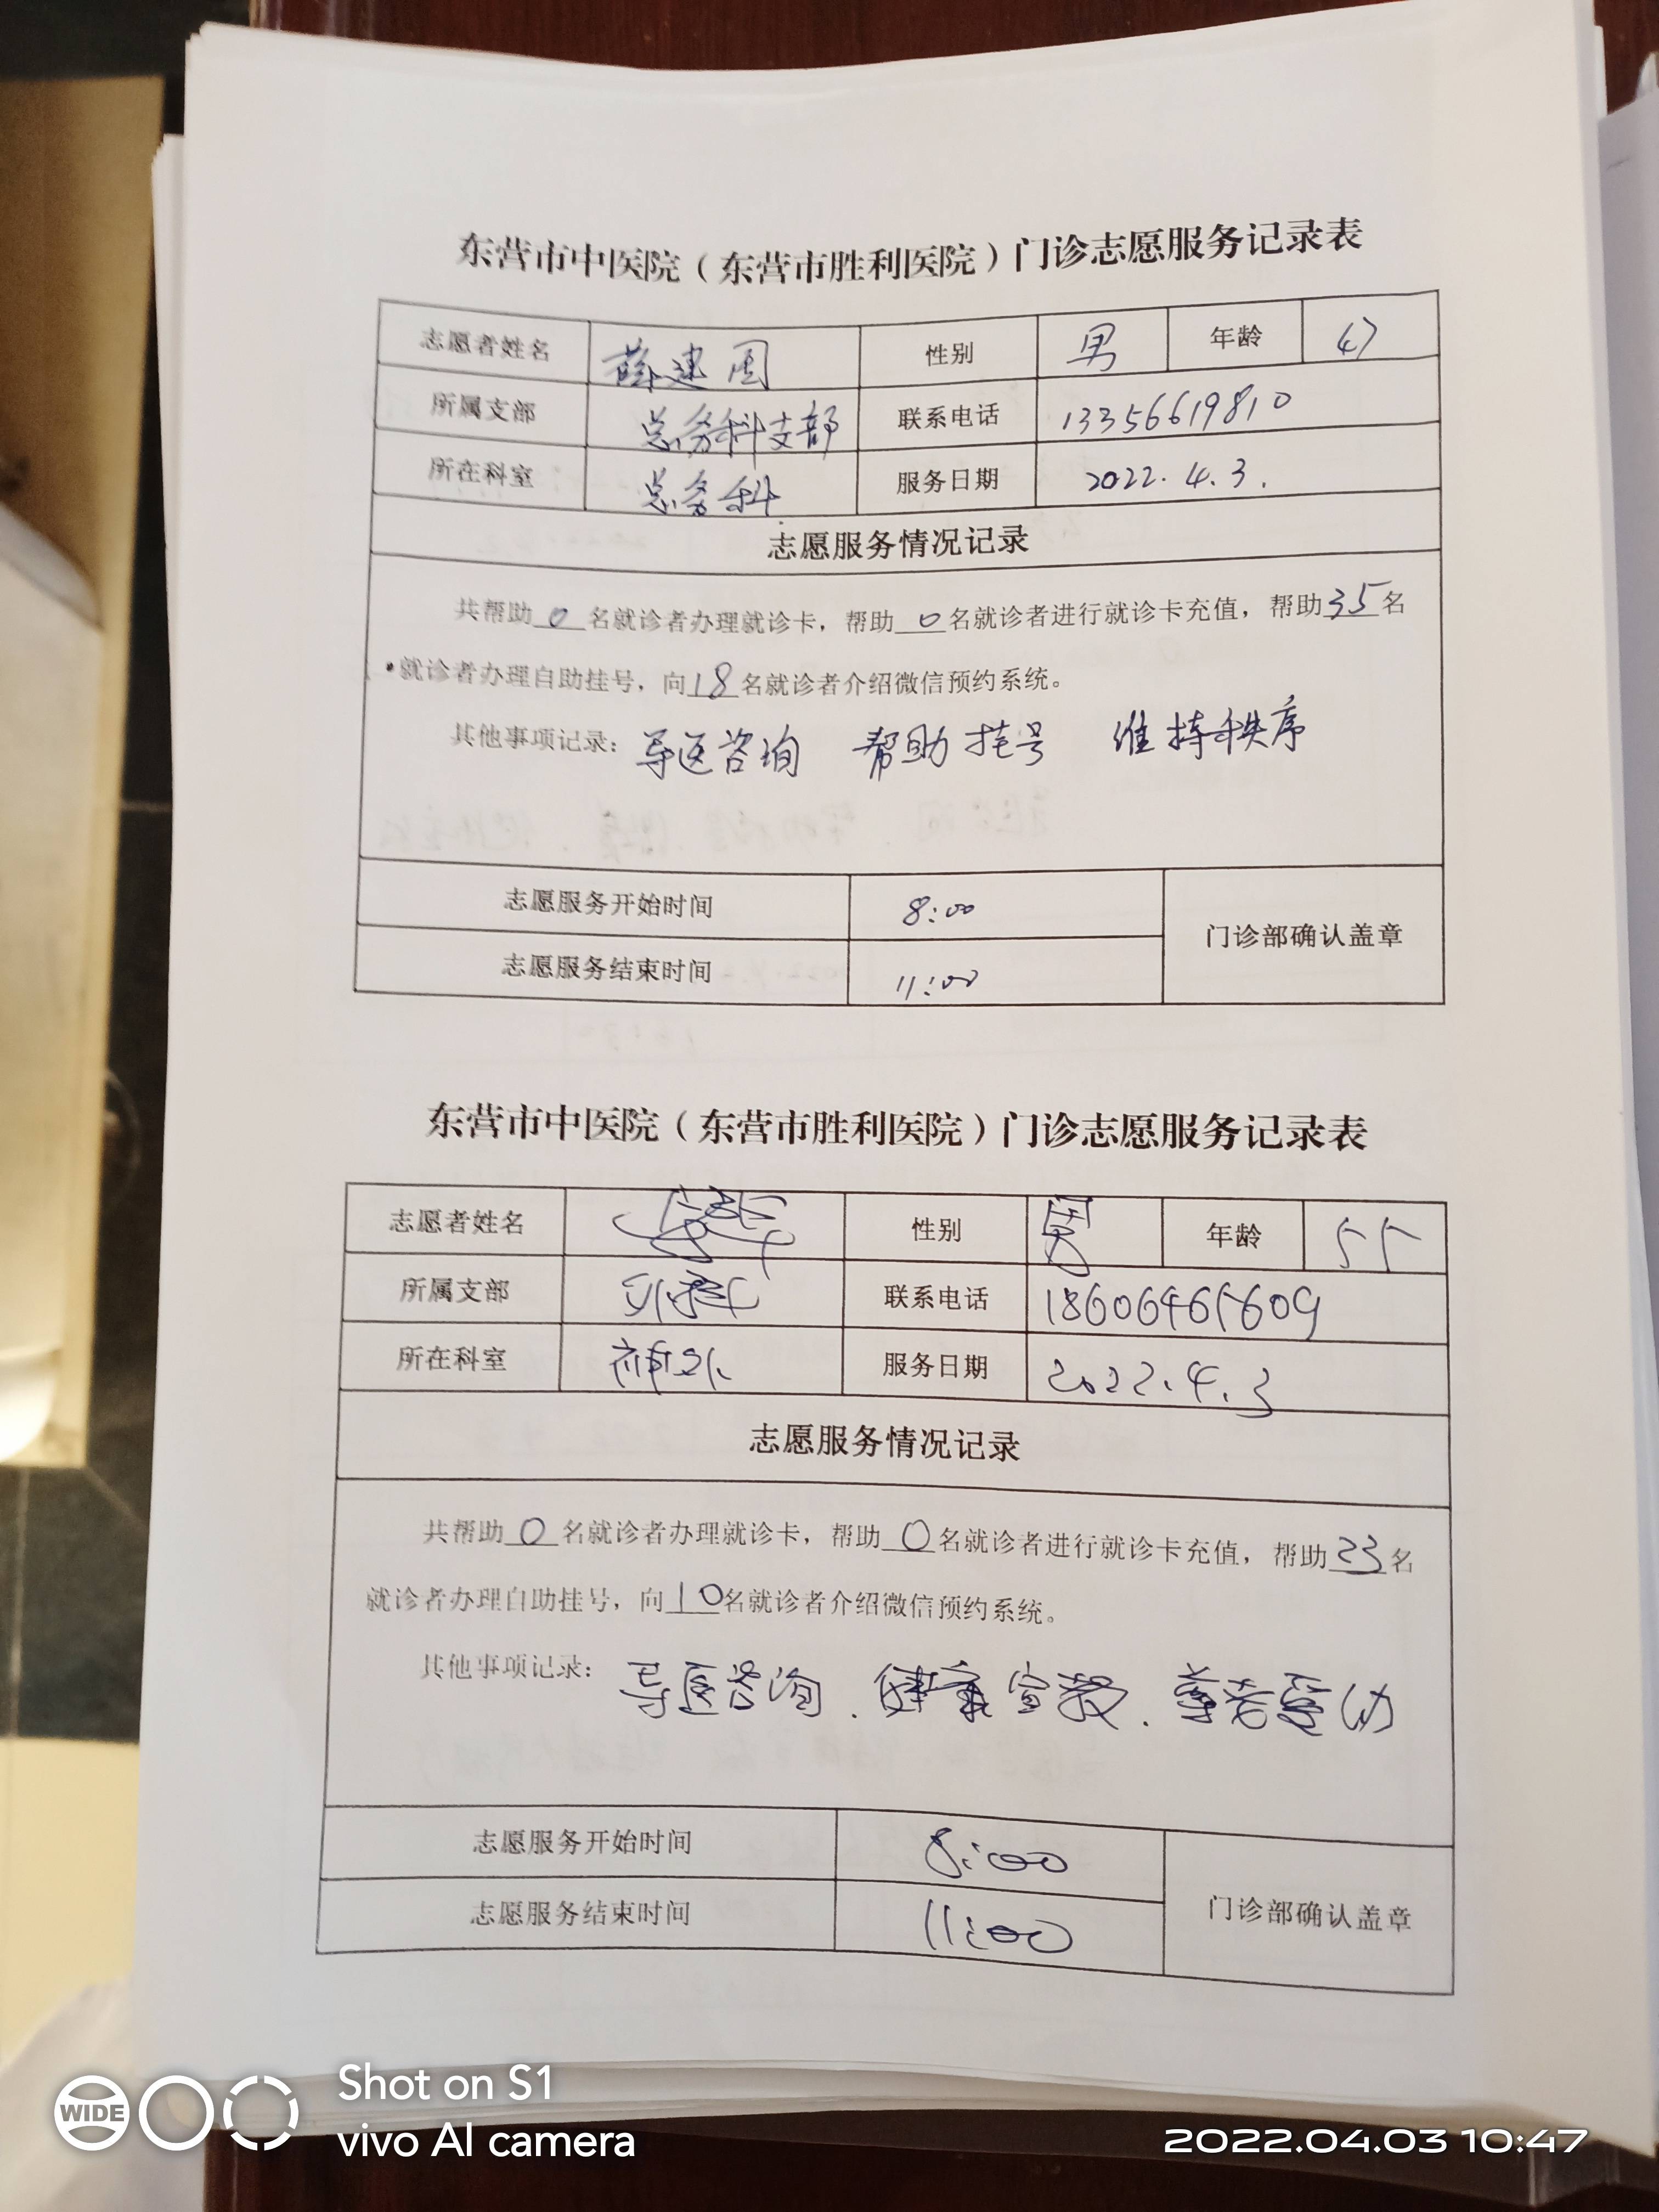 东营市中医院（东营市胜利医院）门诊志愿服务记录表
志愿者姓名 薛建国 性别 男 年龄 47
所属支部 总务科支部 联系电话 13356619810
所在科室 总务科 服务日期 2022.4.3.
志愿服务情况记录
共帮助0名就诊者办理就诊卡，帮助0名就诊者进行就诊卡充值，帮助35名
就诊者办理自助挂号，向18名就诊者介绍微信预约系统。
其他事项记录：导医咨询 帮助挂号 维持秩序
志愿服务开始时间 8:00
门诊部确认盖章
志愿服务结束时间 11:00
东营市中医院（东营市胜利医院）门诊志愿服务记录表
志愿者姓名 性别 男 年龄 55
所属支部 联系电话 18606465609
所在科室 神外 服务日期 2022.4.3
志愿服务情况记录
共帮助0名就诊者办理就诊卡，帮助0名就诊者进行就诊卡充值，帮助23名
就诊者办理自助挂号，向10名就诊者介绍微信预约系统。
其他事项记录：导医咨询．健康宣教．尊老爱幼
志愿服务开始时间 8:00
门诊部确认盖章
志愿服务结束时间 11:00
WIDE
Shot on S1
vivo AI camera
2022.04.03 10:47